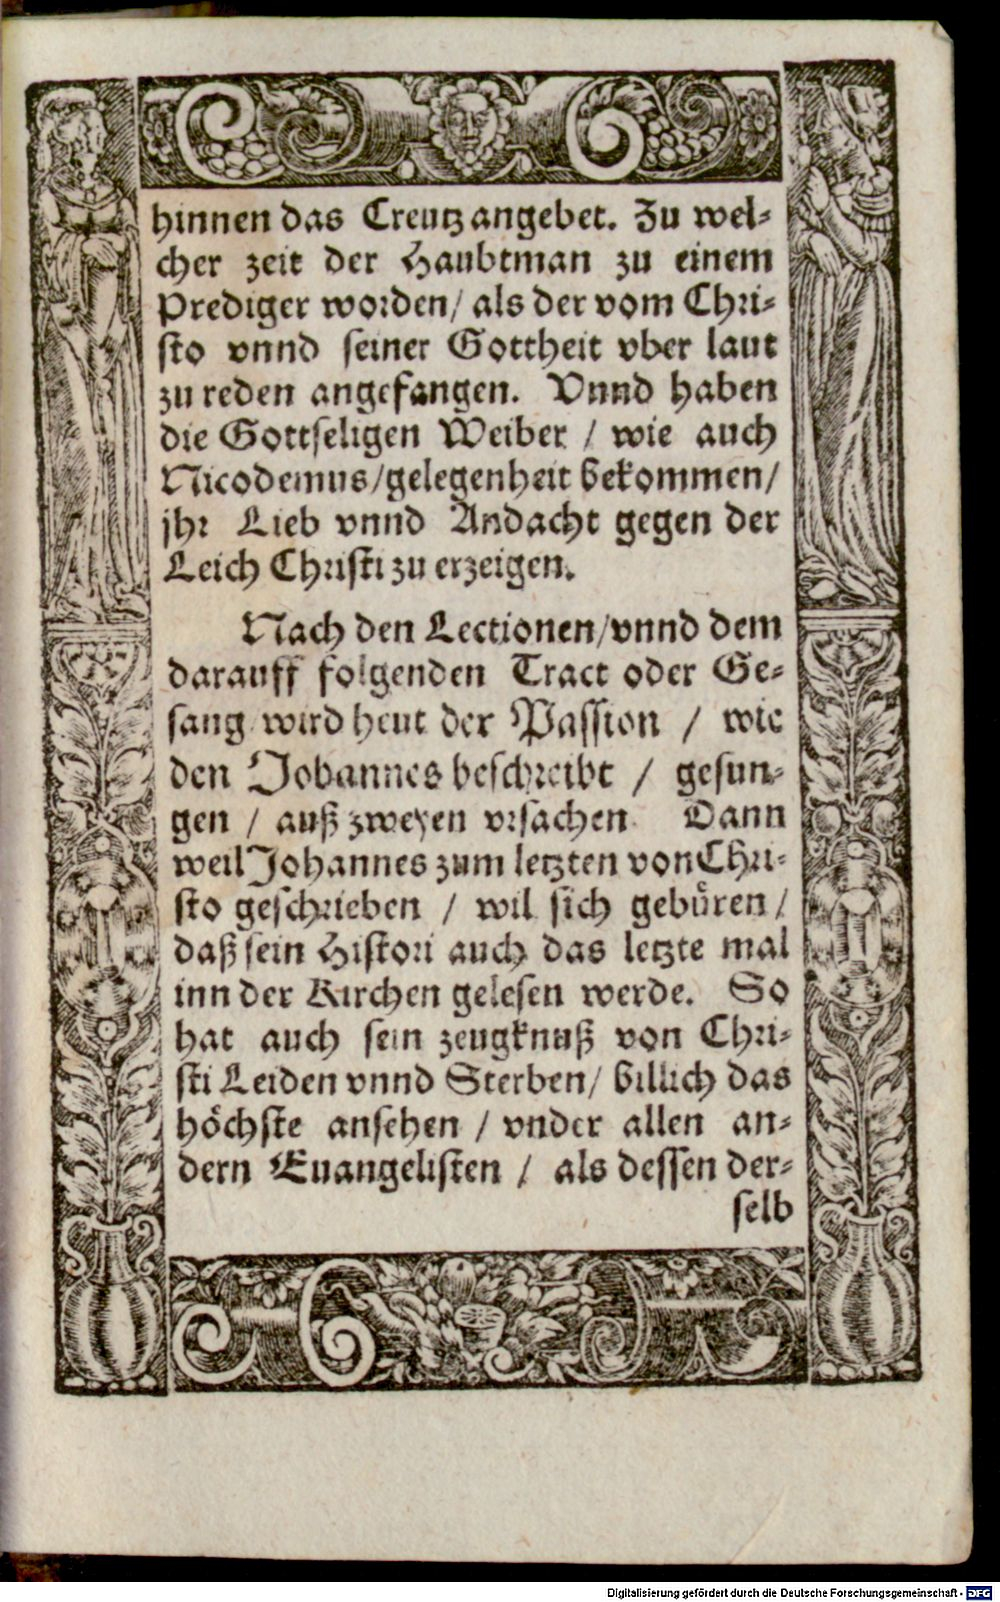 hinnen das Creutz angebet. Zu wel-
cher zeit der Haubtman zu einem
Prediger worden/ als der vom Chri-
sto vnnd seiner Gottheit vber laut
zu reden angefangen. Vnnd haben
die Gottseligen Weiber / wie auch
Nicodemus/gelegenheit bekommen/
jhr Lieb vnnd Andacht gegen der
Leich Christi zu erzeigen.
Nach den Lectionen/vnnd dem
darauff folgenden Tract oder Ge-
sang wird heut der Passion / wie
den Johannes beschreibt / gesun-
gen / auß zweyen vrsachen. Dann
weil Johannes zum letzten von Chri-
sto geschrieben / wil sich gebüren/
daß sein Histori auch das letzte mal
inn der Kirchen gelesen werde. So
hat auch sein zeugknuß von Chri-
sti Leiden vnnd Sterben/ billich das
höchste ansehen / vnder allen an-
dern Euangelisten / als dessen der-
selb
Digitalisierung gefördert durch die Deutsche Forschungsgemeinschaft - DFG